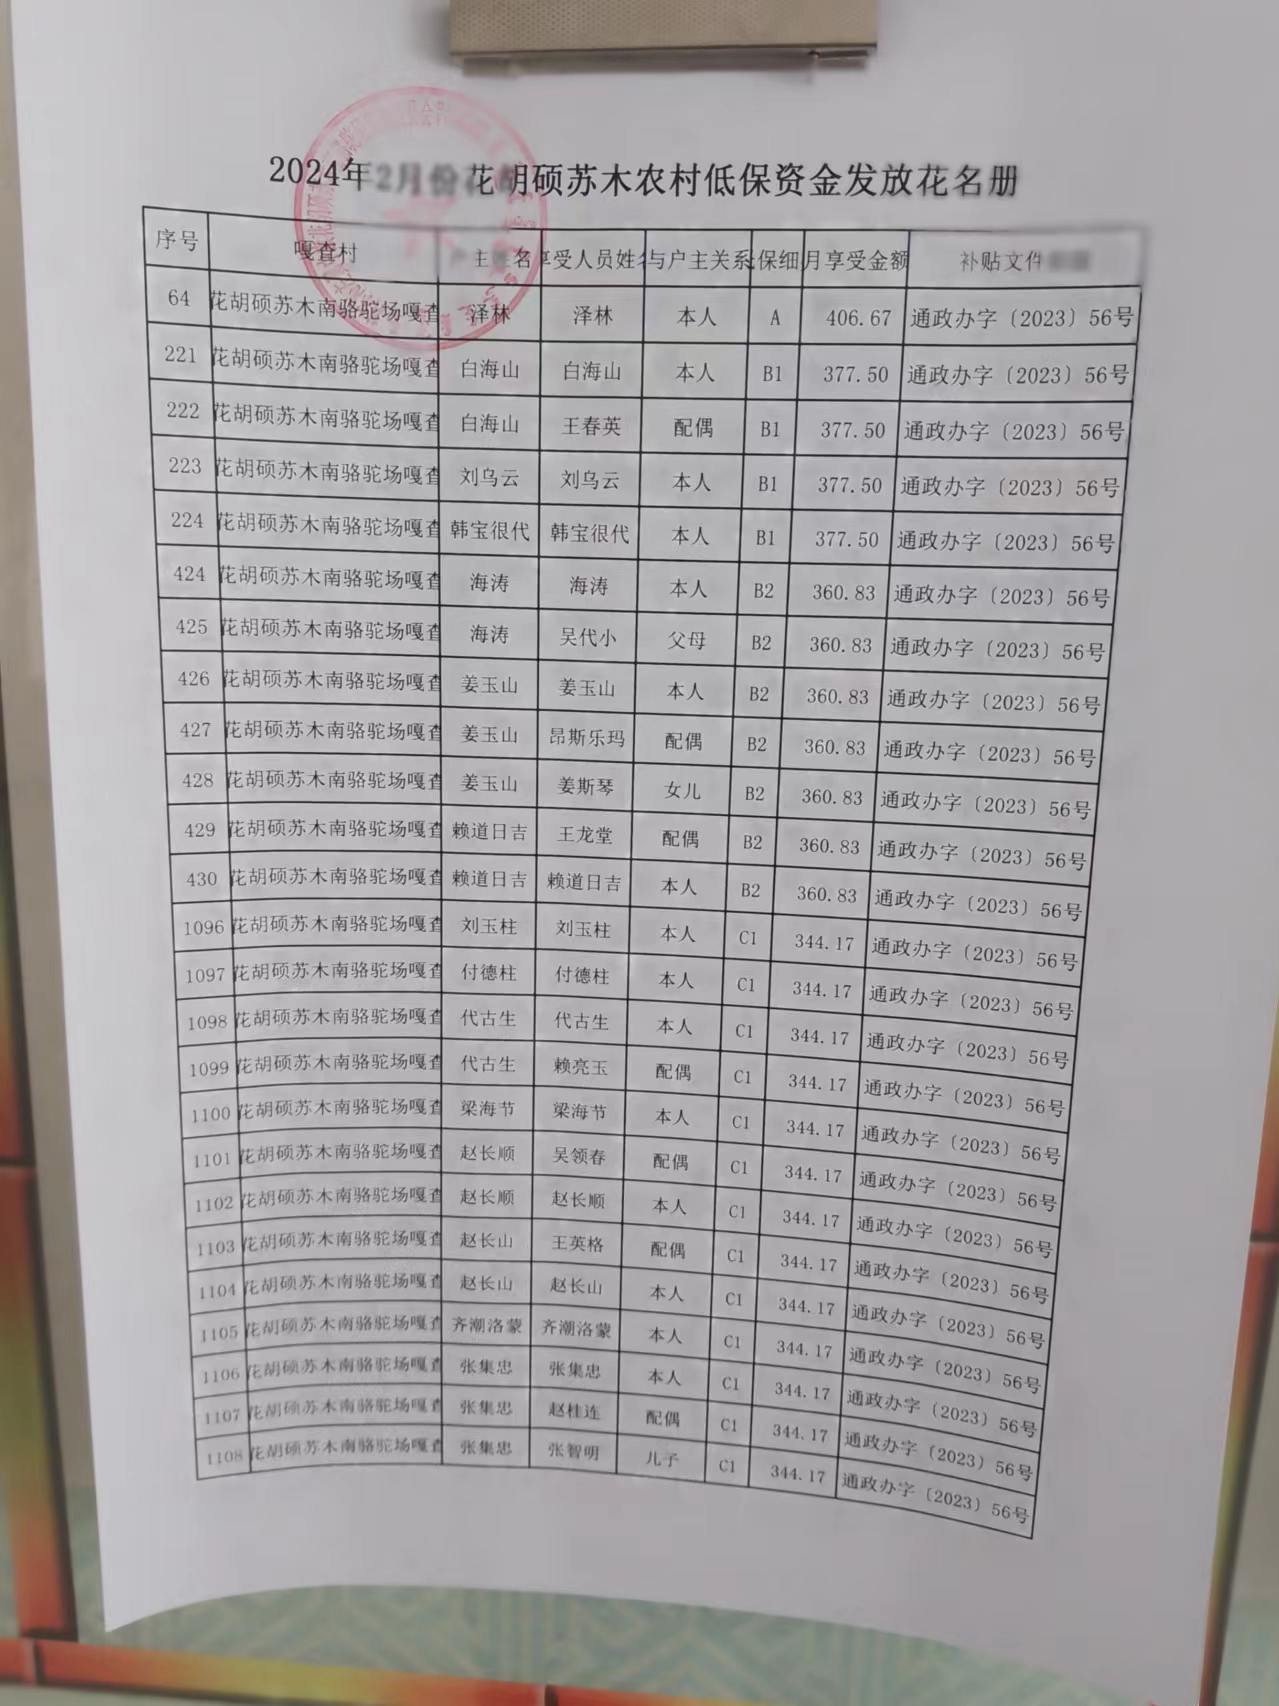 2024年2月份花胡硕苏木农村低保资金发放花名册
序号 嘎查村 户主姓名 享受人员姓名 与户主关系 保细 月享受金额 补贴文件
64 花胡硕苏木南骆驼场嘎查 泽林 泽林 本人 A 406.67 通政办字〔2023〕56号
221 花胡硕苏木南骆驼场嘎查 白海山 白海山 本人 B1 377.50 通政办字〔2023〕56号
222 花胡硕苏木南骆驼场嘎查 白海山 王春英 配偶 B1 377.50 通政办字〔2023〕56号
223 花胡硕苏木南骆驼场嘎查 刘乌云 刘乌云 本人 B1 377.50 通政办字〔2023〕56号
224 花胡硕苏木南骆驼场嘎查 韩宝很代 韩宝很代 本人 B1 377.50 通政办字〔2023〕56号
424 花胡硕苏木南骆驼场嘎查 海涛 海涛 本人 B2 360.83 通政办字〔2023〕56号
425 花胡硕苏木南骆驼场嘎查 海涛 吴代小 父母 B2 360.83 通政办字〔2023〕56号
426 花胡硕苏木南骆驼场嘎查 姜玉山 姜玉山 本人 B2 360.83 通政办字〔2023〕56号
427 花胡硕苏木南骆驼场嘎查 姜玉山 昂斯乐玛 配偶 B2 360.83 通政办字〔2023〕56号
428 花胡硕苏木南骆驼场嘎查 姜玉山 姜斯琴 女儿 B2 360.83 通政办字〔2023〕56号
429 花胡硕苏木南骆驼场嘎查 赖道日吉 王龙堂 配偶 B2 360.83 通政办字〔2023〕56号
430 花胡硕苏木南骆驼场嘎查 赖道日吉 赖道日吉 本人 B2 360.83 通政办字〔2023〕56号
1096 花胡硕苏木南骆驼场嘎查 刘玉柱 刘玉柱 本人 C1 344.17 通政办字〔2023〕56号
1097 花胡硕苏木南骆驼场嘎查 付德柱 付德柱 本人 C1 344.17 通政办字〔2023〕56号
1098 花胡硕苏木南骆驼场嘎查 代古生 代古生 本人 C1 344.17 通政办字〔2023〕56号
1099 花胡硕苏木南骆驼场嘎查 代古生 赖亮玉 配偶 C1 344.17 通政办字〔2023〕56号
1100 花胡硕苏木南骆驼场嘎查 梁海节 梁海节 本人 C1 344.17 通政办字〔2023〕56号
1101 花胡硕苏木南骆驼场嘎查 赵长顺 吴领春 配偶 C1 344.17 通政办字〔2023〕56号
1102 花胡硕苏木南骆驼场嘎查 赵长顺 赵长顺 本人 C1 344.17 通政办字〔2023〕56号
1103 花胡硕苏木南骆驼场嘎查 赵长山 王英格 配偶 C1 344.17 通政办字〔2023〕56号
1104 花胡硕苏木南骆驼场嘎查 赵长山 赵长山 本人 C1 344.17 通政办字〔2023〕56号
1105 花胡硕苏木南骆驼场嘎查 齐潮洛蒙 齐潮洛蒙 本人 C1 344.17 通政办字〔2023〕56号
1106 花胡硕苏木南骆驼场嘎查 张集忠 张集忠 本人 C1 344.17 通政办字〔2023〕56号
1107 花胡硕苏木南骆驼场嘎查 张集忠 赵桂连 配偶 C1 344.17 通政办字〔2023〕56号
1108 花胡硕苏木南骆驼场嘎查 张集忠 张智明 儿子 C1 344.17 通政办字〔2023〕56号